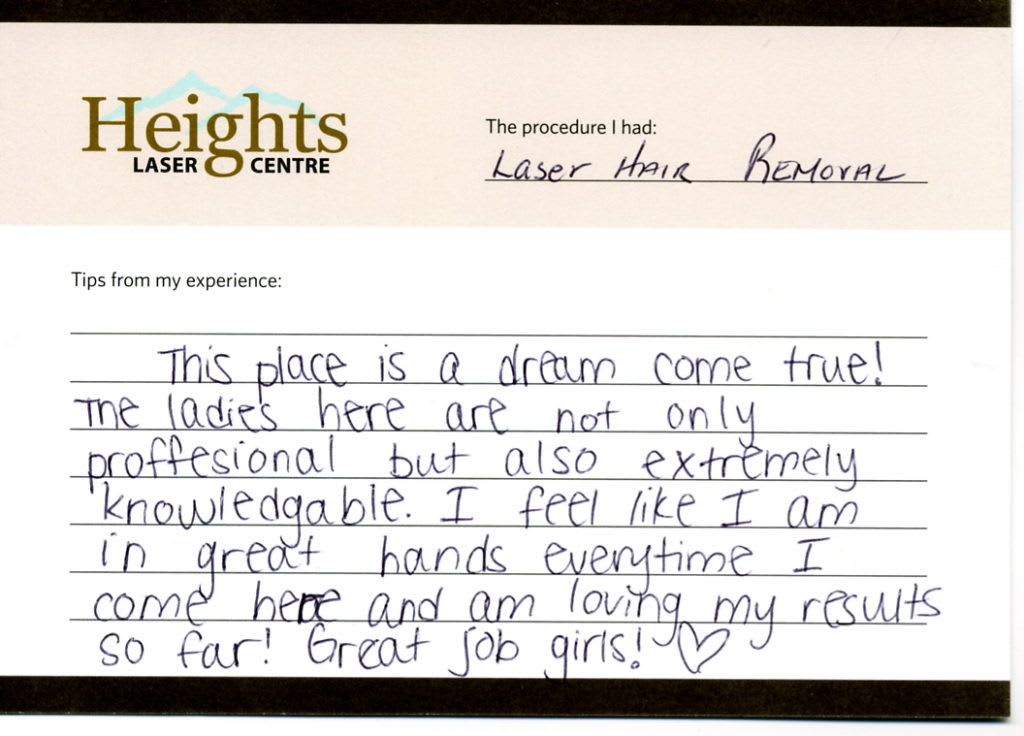 Heights
LASER CENTRE
The procedure I had:
Laser HAIR REMOVAL
Tips from my experience:
This place is a dream come true!
The ladies here are not only
proffesional but also extremely
knowledgable. I feel like I am
in great hands everytime I
come here and am loving my results
so far! Great job girls!